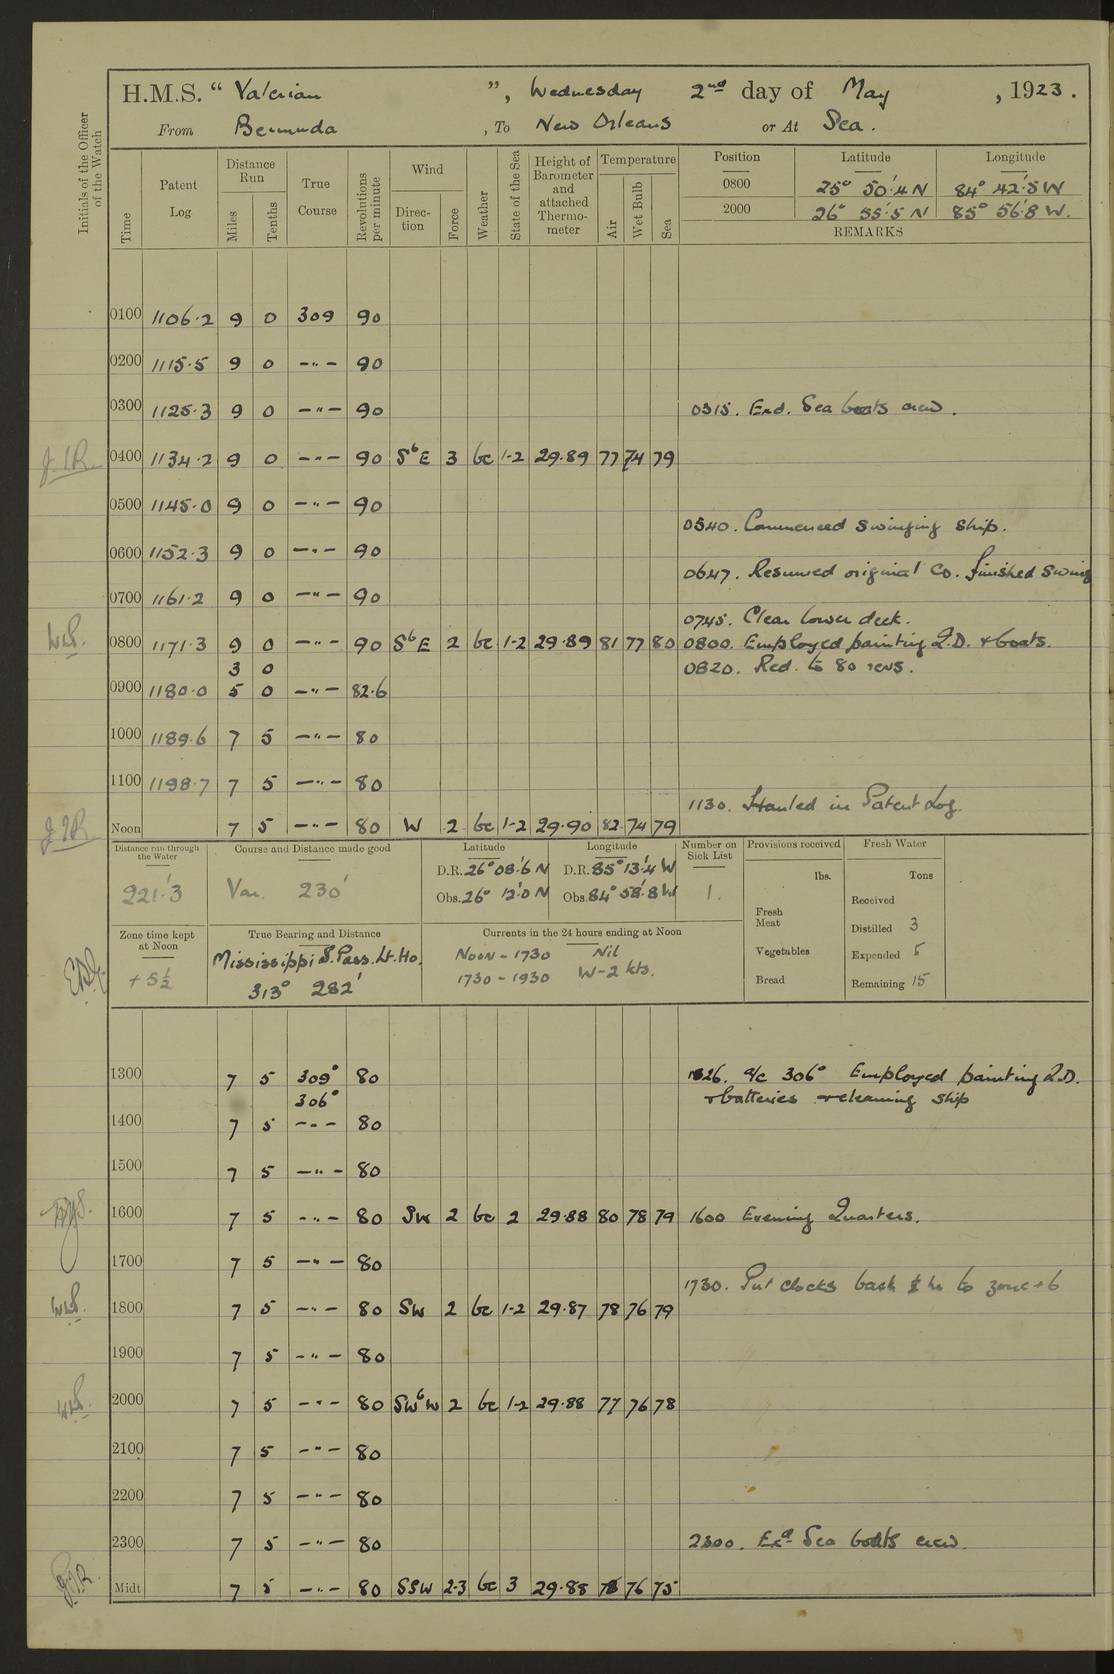 H.M.S. “ Valerian ”, Wednesday 2nd day of May, 1923.
From Bermuda, To New Orleans or At Sea.
Initials of the Officer of the Watch
Time Patent Log Distance Run Miles Tenths True Course Revolutions per minute Wind Direction Force Weather State of the Sea Height of Barometer and attached Thermometer Temperature Air Wet Bulb Sea
Position Latitude Longitude
0800 25° 50'.4 N 84° 42'.5 W
2000 26° 55'.5 N 85° 56'.8 W.
REMARKS
0100 1106.2 9 0 309 90
0200 1115.5 9 0 —"— 90
0300 1125.3 9 0 —"— 90 0315. Exd. Sea boats crew.
0400 1134.2 9 0 —"— 90 SbE 3 bc 1-2 29.89 77 74 79
0500 1145.0 9 0 —"— 90
0540. Commenced swinging ship.
0600 1152.3 9 0 —"— 90
0647. Resumed original Co. finished swing
0700 1161.2 9 0 —"— 90
0745. Clear lower deck.
0800 1171.3 9 0 —"— 90 SbE 2 bc 1-2 29.89 81 77 80 0800. Employed painting Q.D. + boats.
3 0 0820. Red. to 80 revs.
0900 1180.0 5 0 —"— 82.6
1000 1189.6 7 5 —"— 80
1100 1198.7 7 5 —"— 80
1130. Hauled in Patent Log.
Noon 7 5 —"— 80 W 2 bc 1-2 29.90 82 74 79
Distance run through the Water Course and Distance made good Latitude Longitude Number on Sick List Provisions received Fresh Water
221'.3 Var. 230' D.R. 26° 08'.6 N D.R. 85° 13'.4 W lbs. Tons
Obs. 26° 12'.0 N Obs. 84° 58'.8 W 1. Received
Fresh Meat Distilled 3
Zone time kept at Noon True Bearing and Distance Currents in the 24 hours ending at Noon
+ 5½ Mississippi S. Pass. Lt. Ho. Noon - 1730 Nil Vegetables Expended 5
313° 282' 1730 - 1930 W-2 kts. Bread Remaining 15
1300 7 5 309° 80 1326. a/c 306° Employed painting Q.D.
306° + batteries + cleaning ship
1400 7 5 —"— 80
1500 7 5 —"— 80
1600 7 5 —"— 80 SW 2 bc 2 29.88 80 78 79 1600 Evening Quarters.
1700 7 5 —"— 80
1730. Put clocks back ½ hr to zone + 6
1800 7 5 —"— 80 SW 2 bc 1-2 29.87 78 76 79
1900 7 5 —"— 80
2000 7 5 —"— 80 SWbW 2 bc 1-2 29.88 77 76 78
2100 7 5 —"— 80
2200 7 5 —"— 80
2300 7 5 —"— 80 2300. Exd Sea boats crew.
Midt 7 5 —"— 80 SSW 2-3 bc 3 29.88 76 75